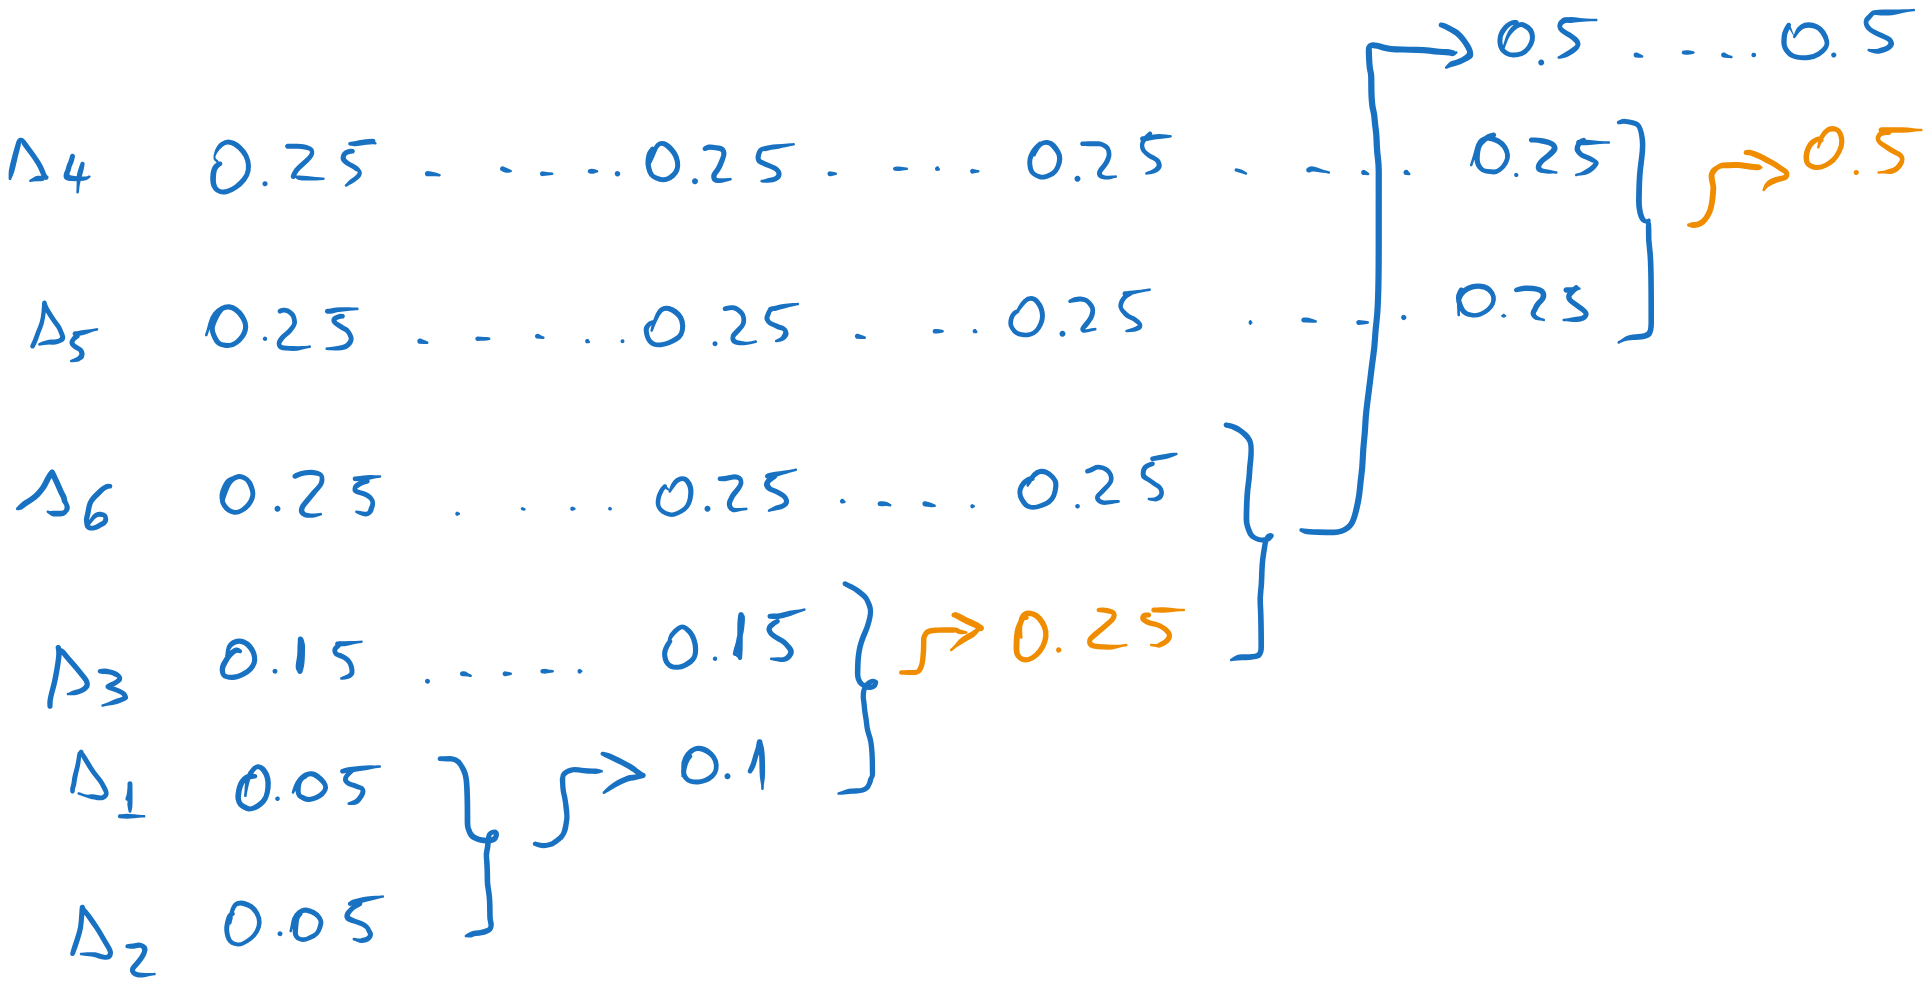 0.5 . - - . 0.5
Δ4 0.25 - - - - . 0.25 . - . - 0.25 - - - . 0.25 0.5
Δ5 0.25 . - - . . 0.25 . - . 0.25 . - - . 0.25
Δ6 0.25 . . . . 0.25 . - - . 0.25
Δ3 0.15 . - - - . 0.15 0.25
Δ1 0.05 0.1
Δ2 0.05